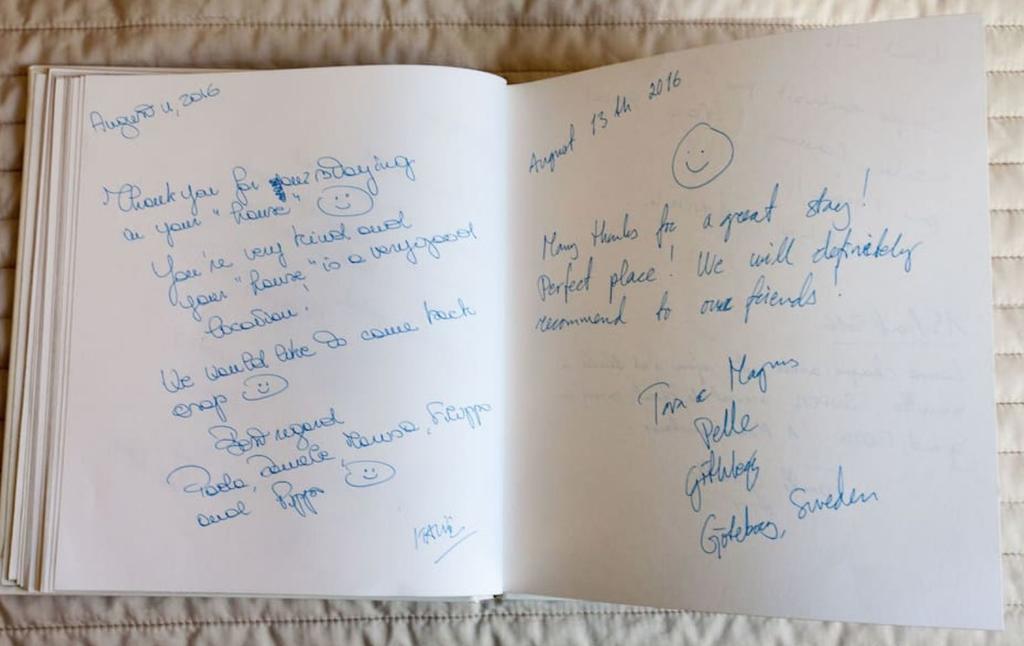 August 11, 2016
Thank you for staying
in your "house"
You're very kind and
your "house" is a very good
location!
We would like to come back
asap
Best regard
Paola, Daniele, Filippo
and Pippo
August 13th 2016
Many thanks for a great stay!
Perfect place! We will definitely
recommend to our friends!
Magnus
Pelle
Göteborg, Sweden